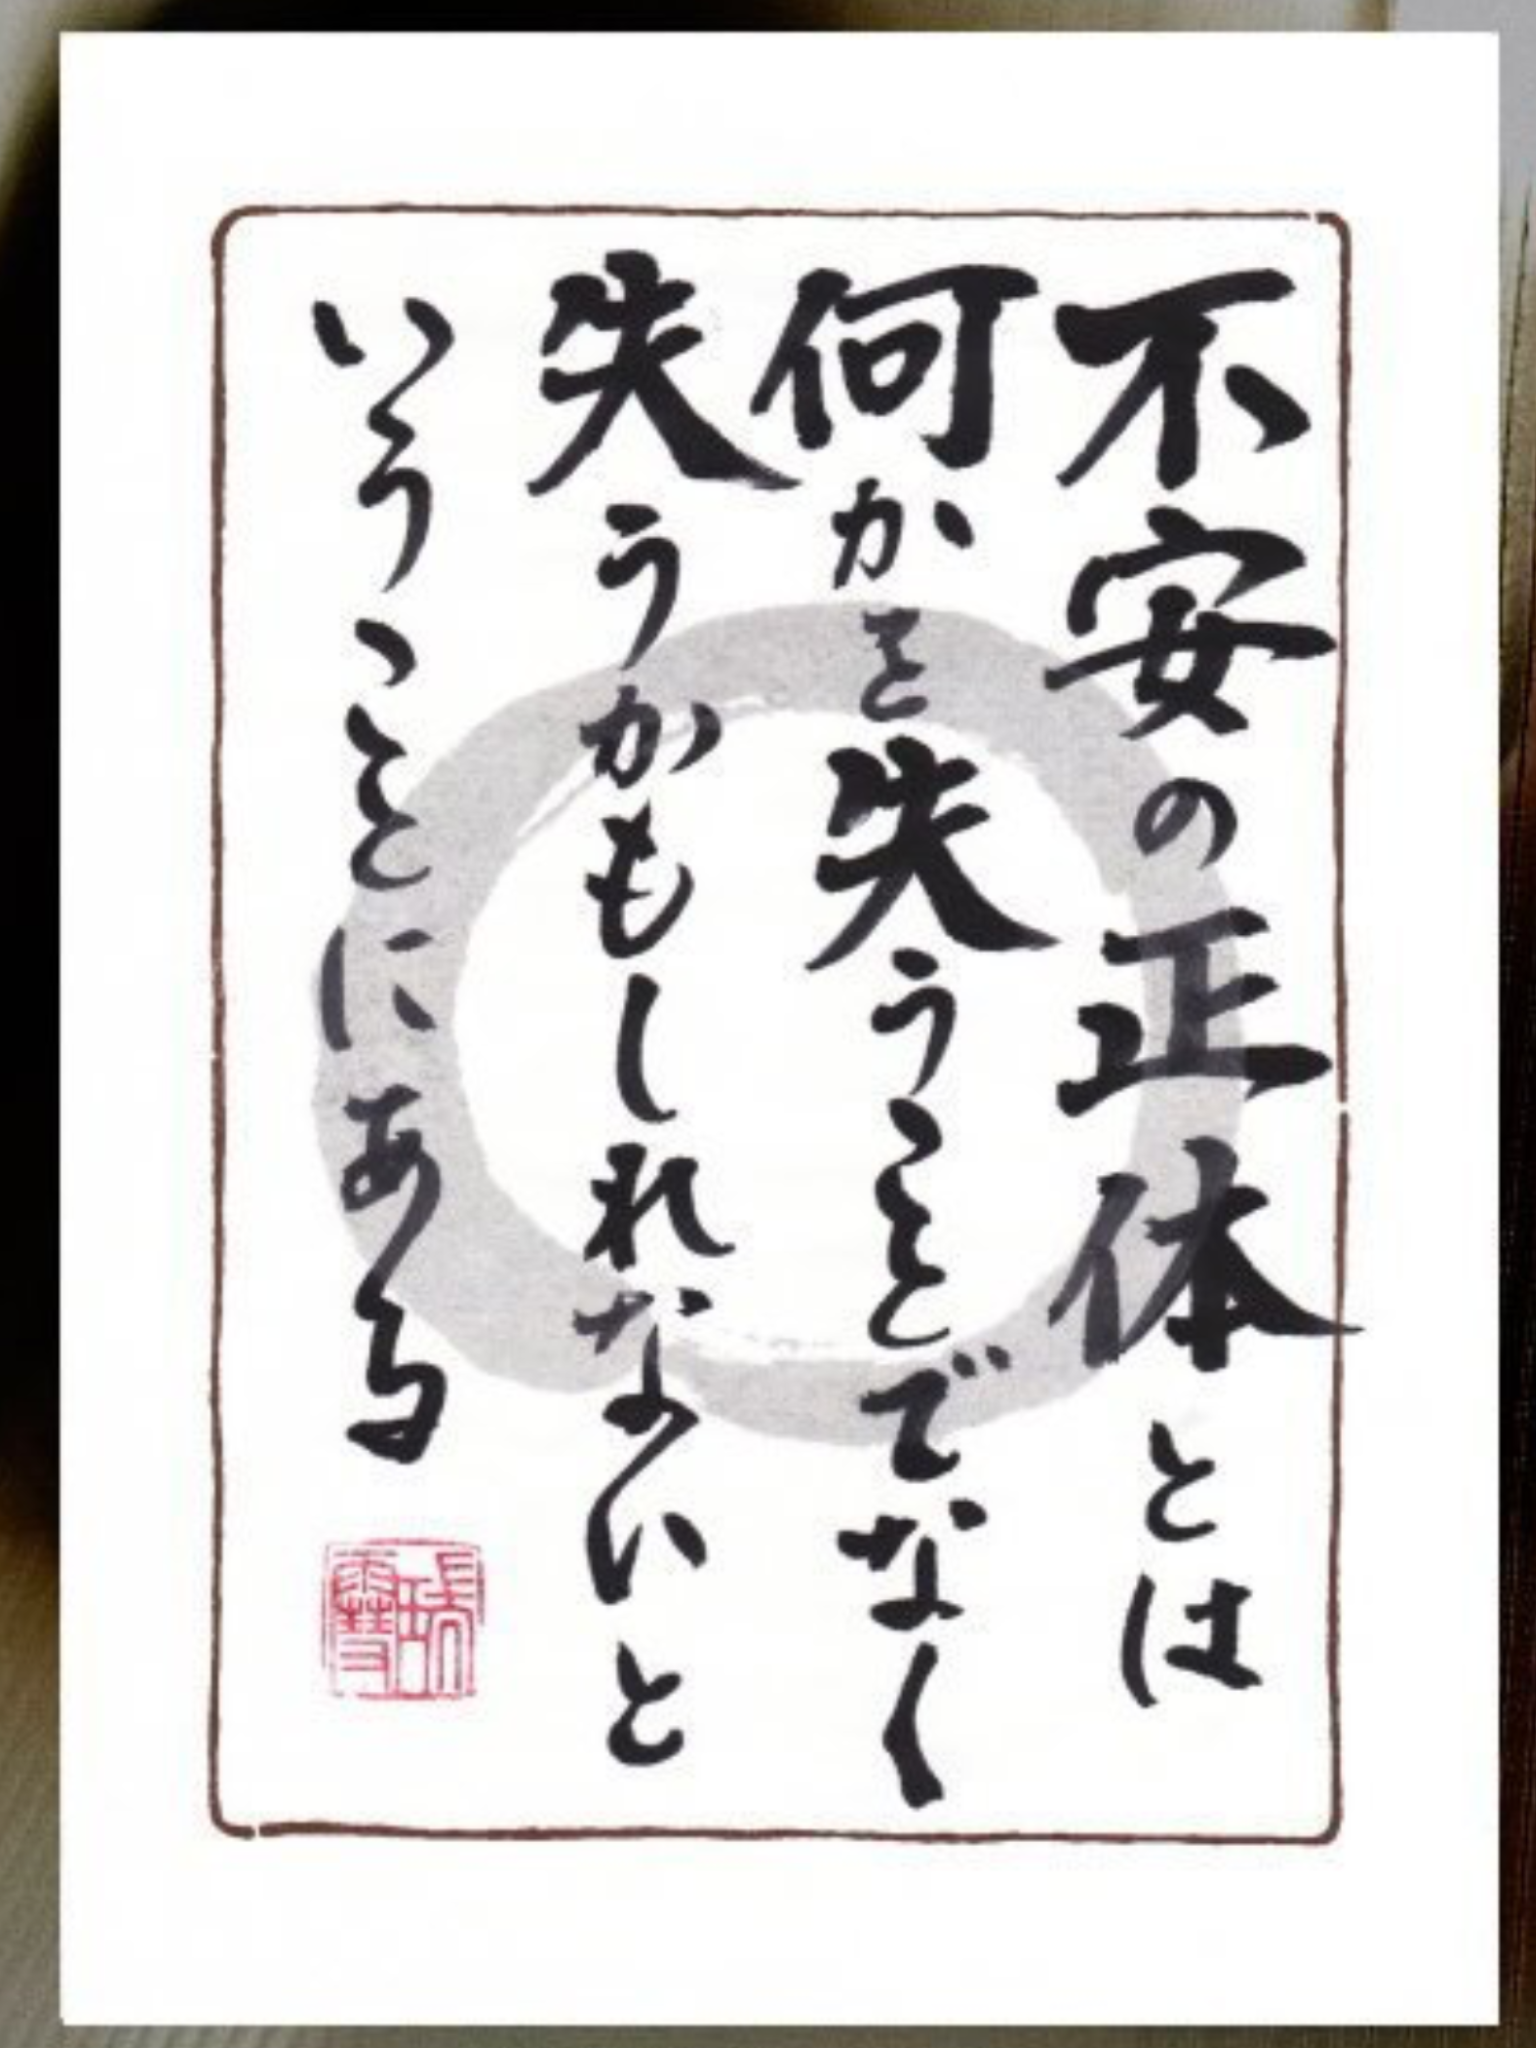 不安の正体とは
何かを失うことでなく
失うかもしれないと
いうことにある